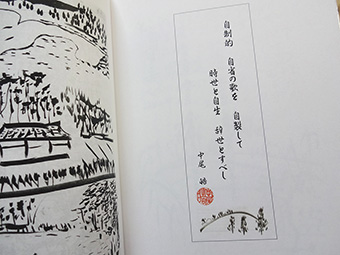 自制的　自省の歌を　自製して
時世と自生　辞世とすべし
中尾